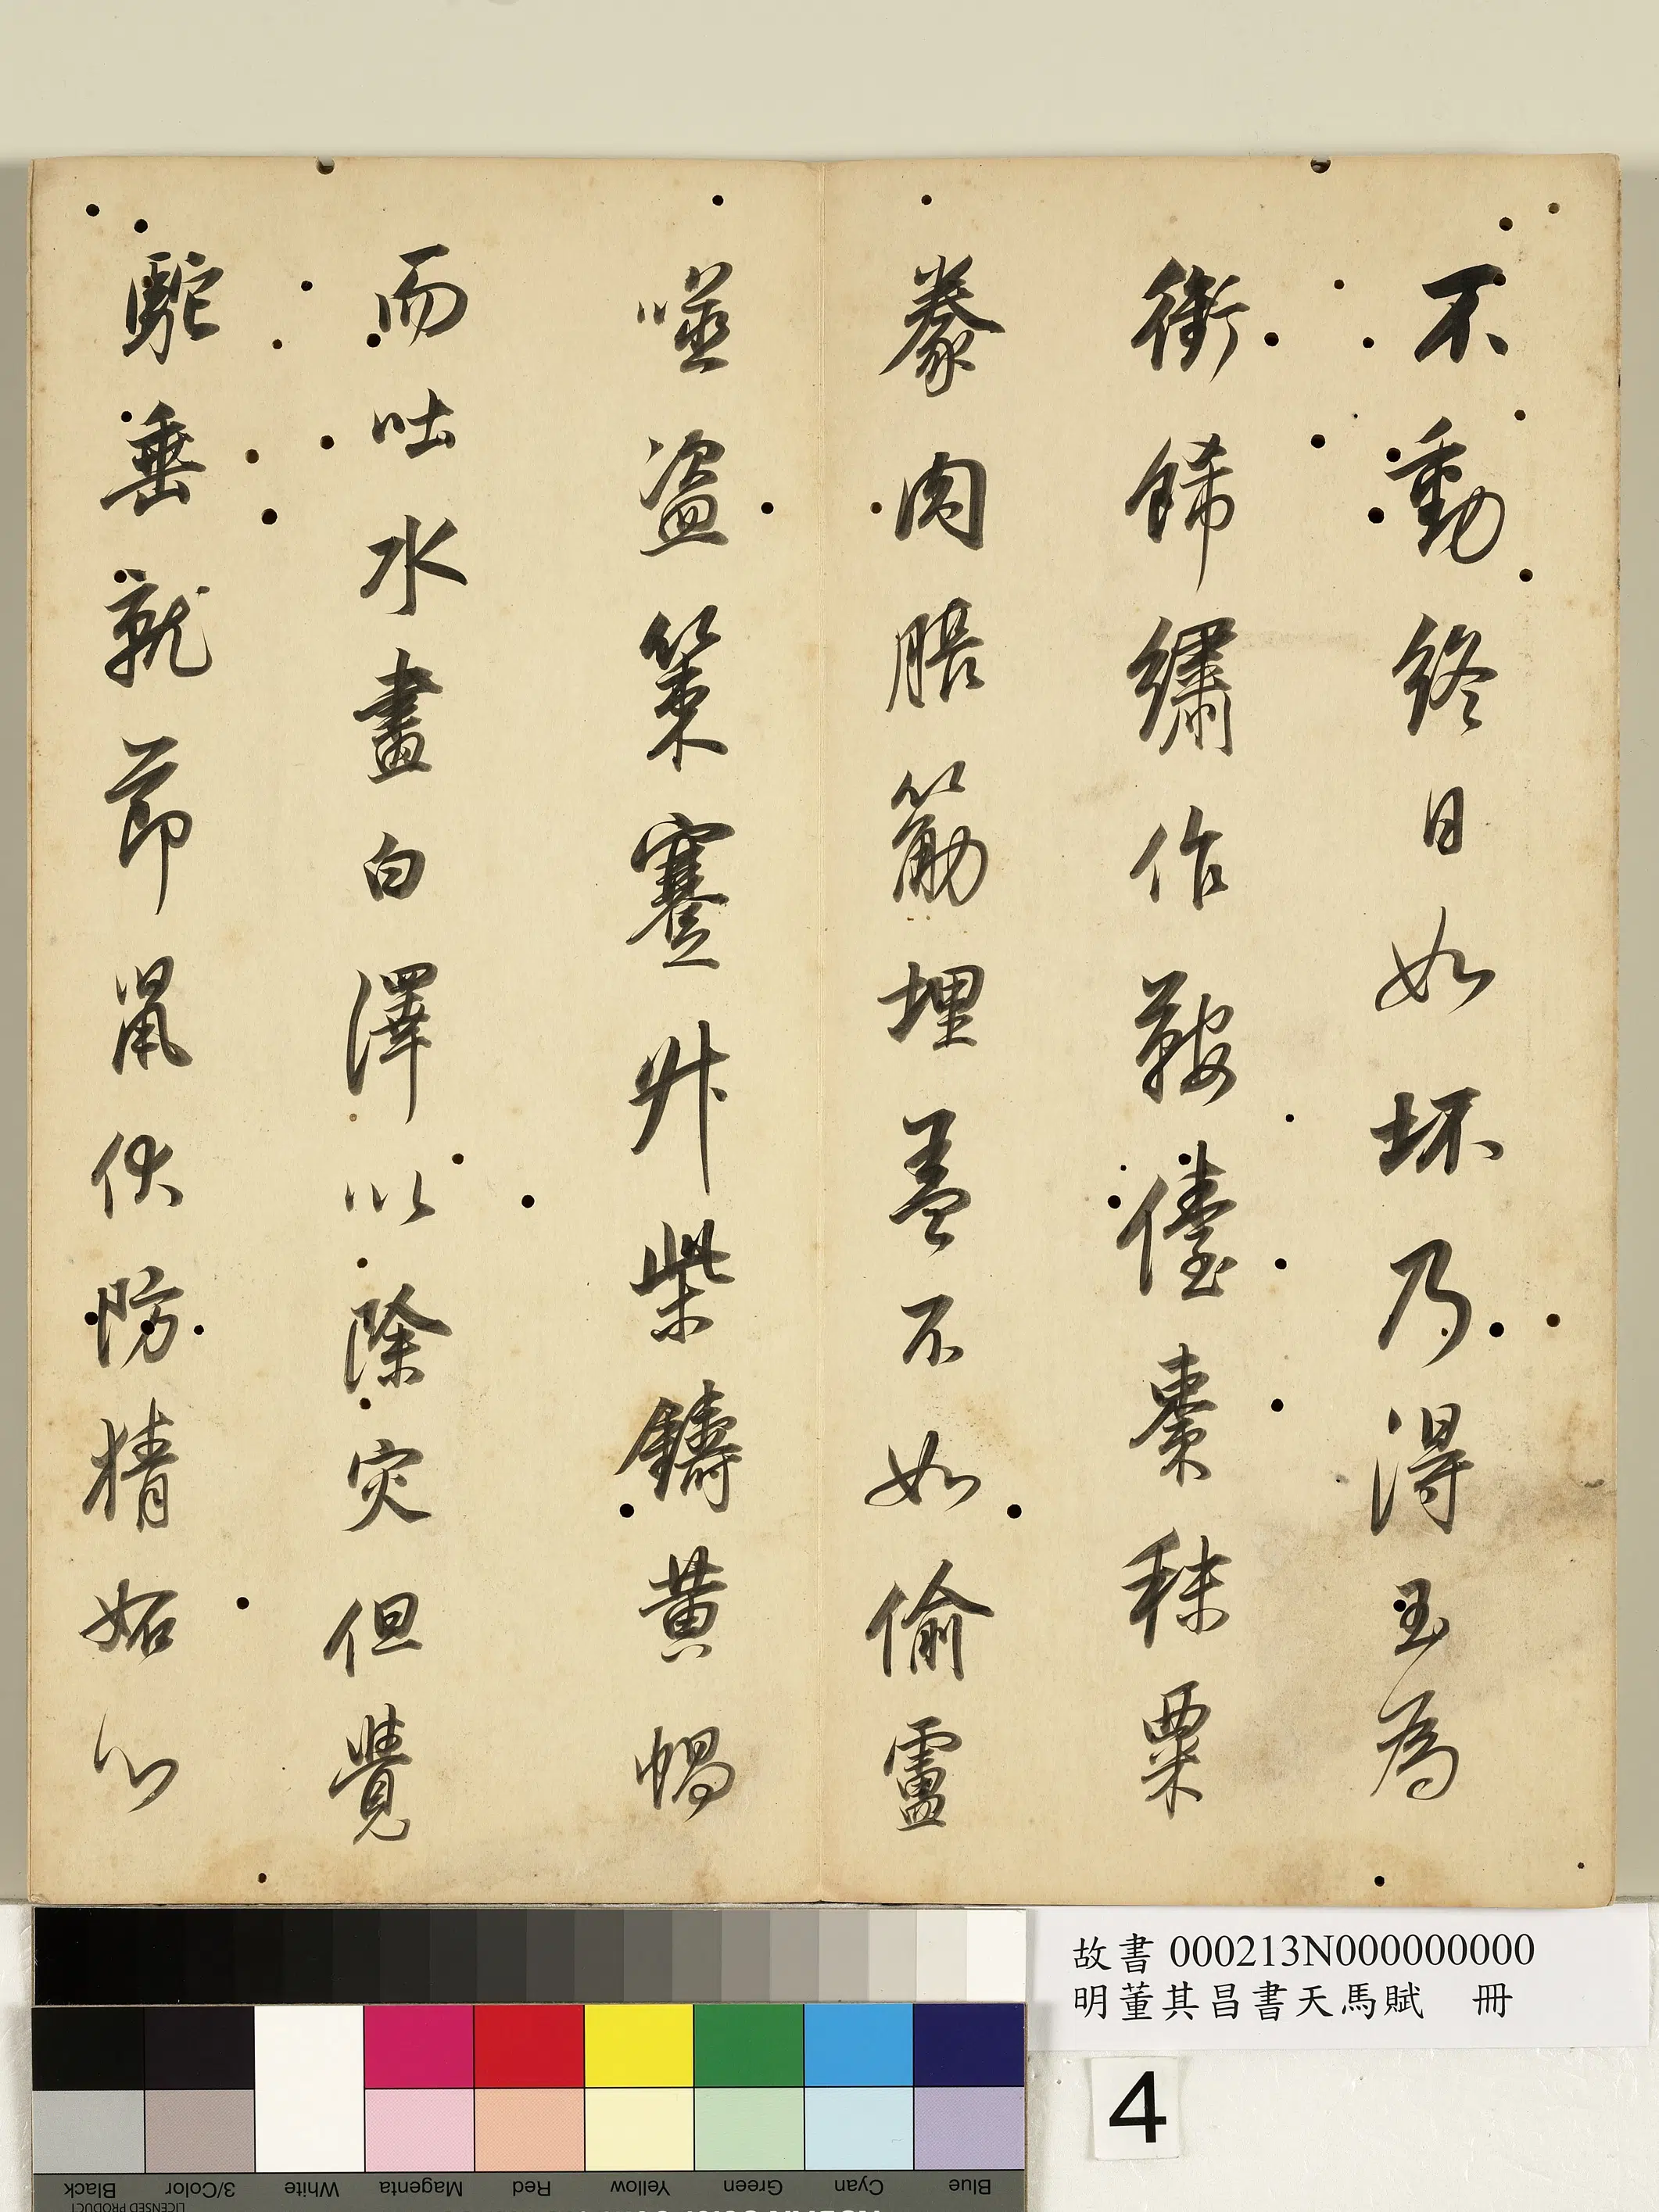 不動終日如坏乃得玉為
銜餙繡作鞍儓棗秣粟
豢肉筋埋盖不如偷盧
噬盜策蹇柴鑄黃蝸
而吐水畫白澤以除灾但覺
駝垂就節鼠伏防猜妬心
故書 000213N000000000
明董其昌書天馬賦 冊
4
Blue
Cyan
Green
Yellow
Red
Magenta
White
3/Color
Black
LICENSED PRODUCT